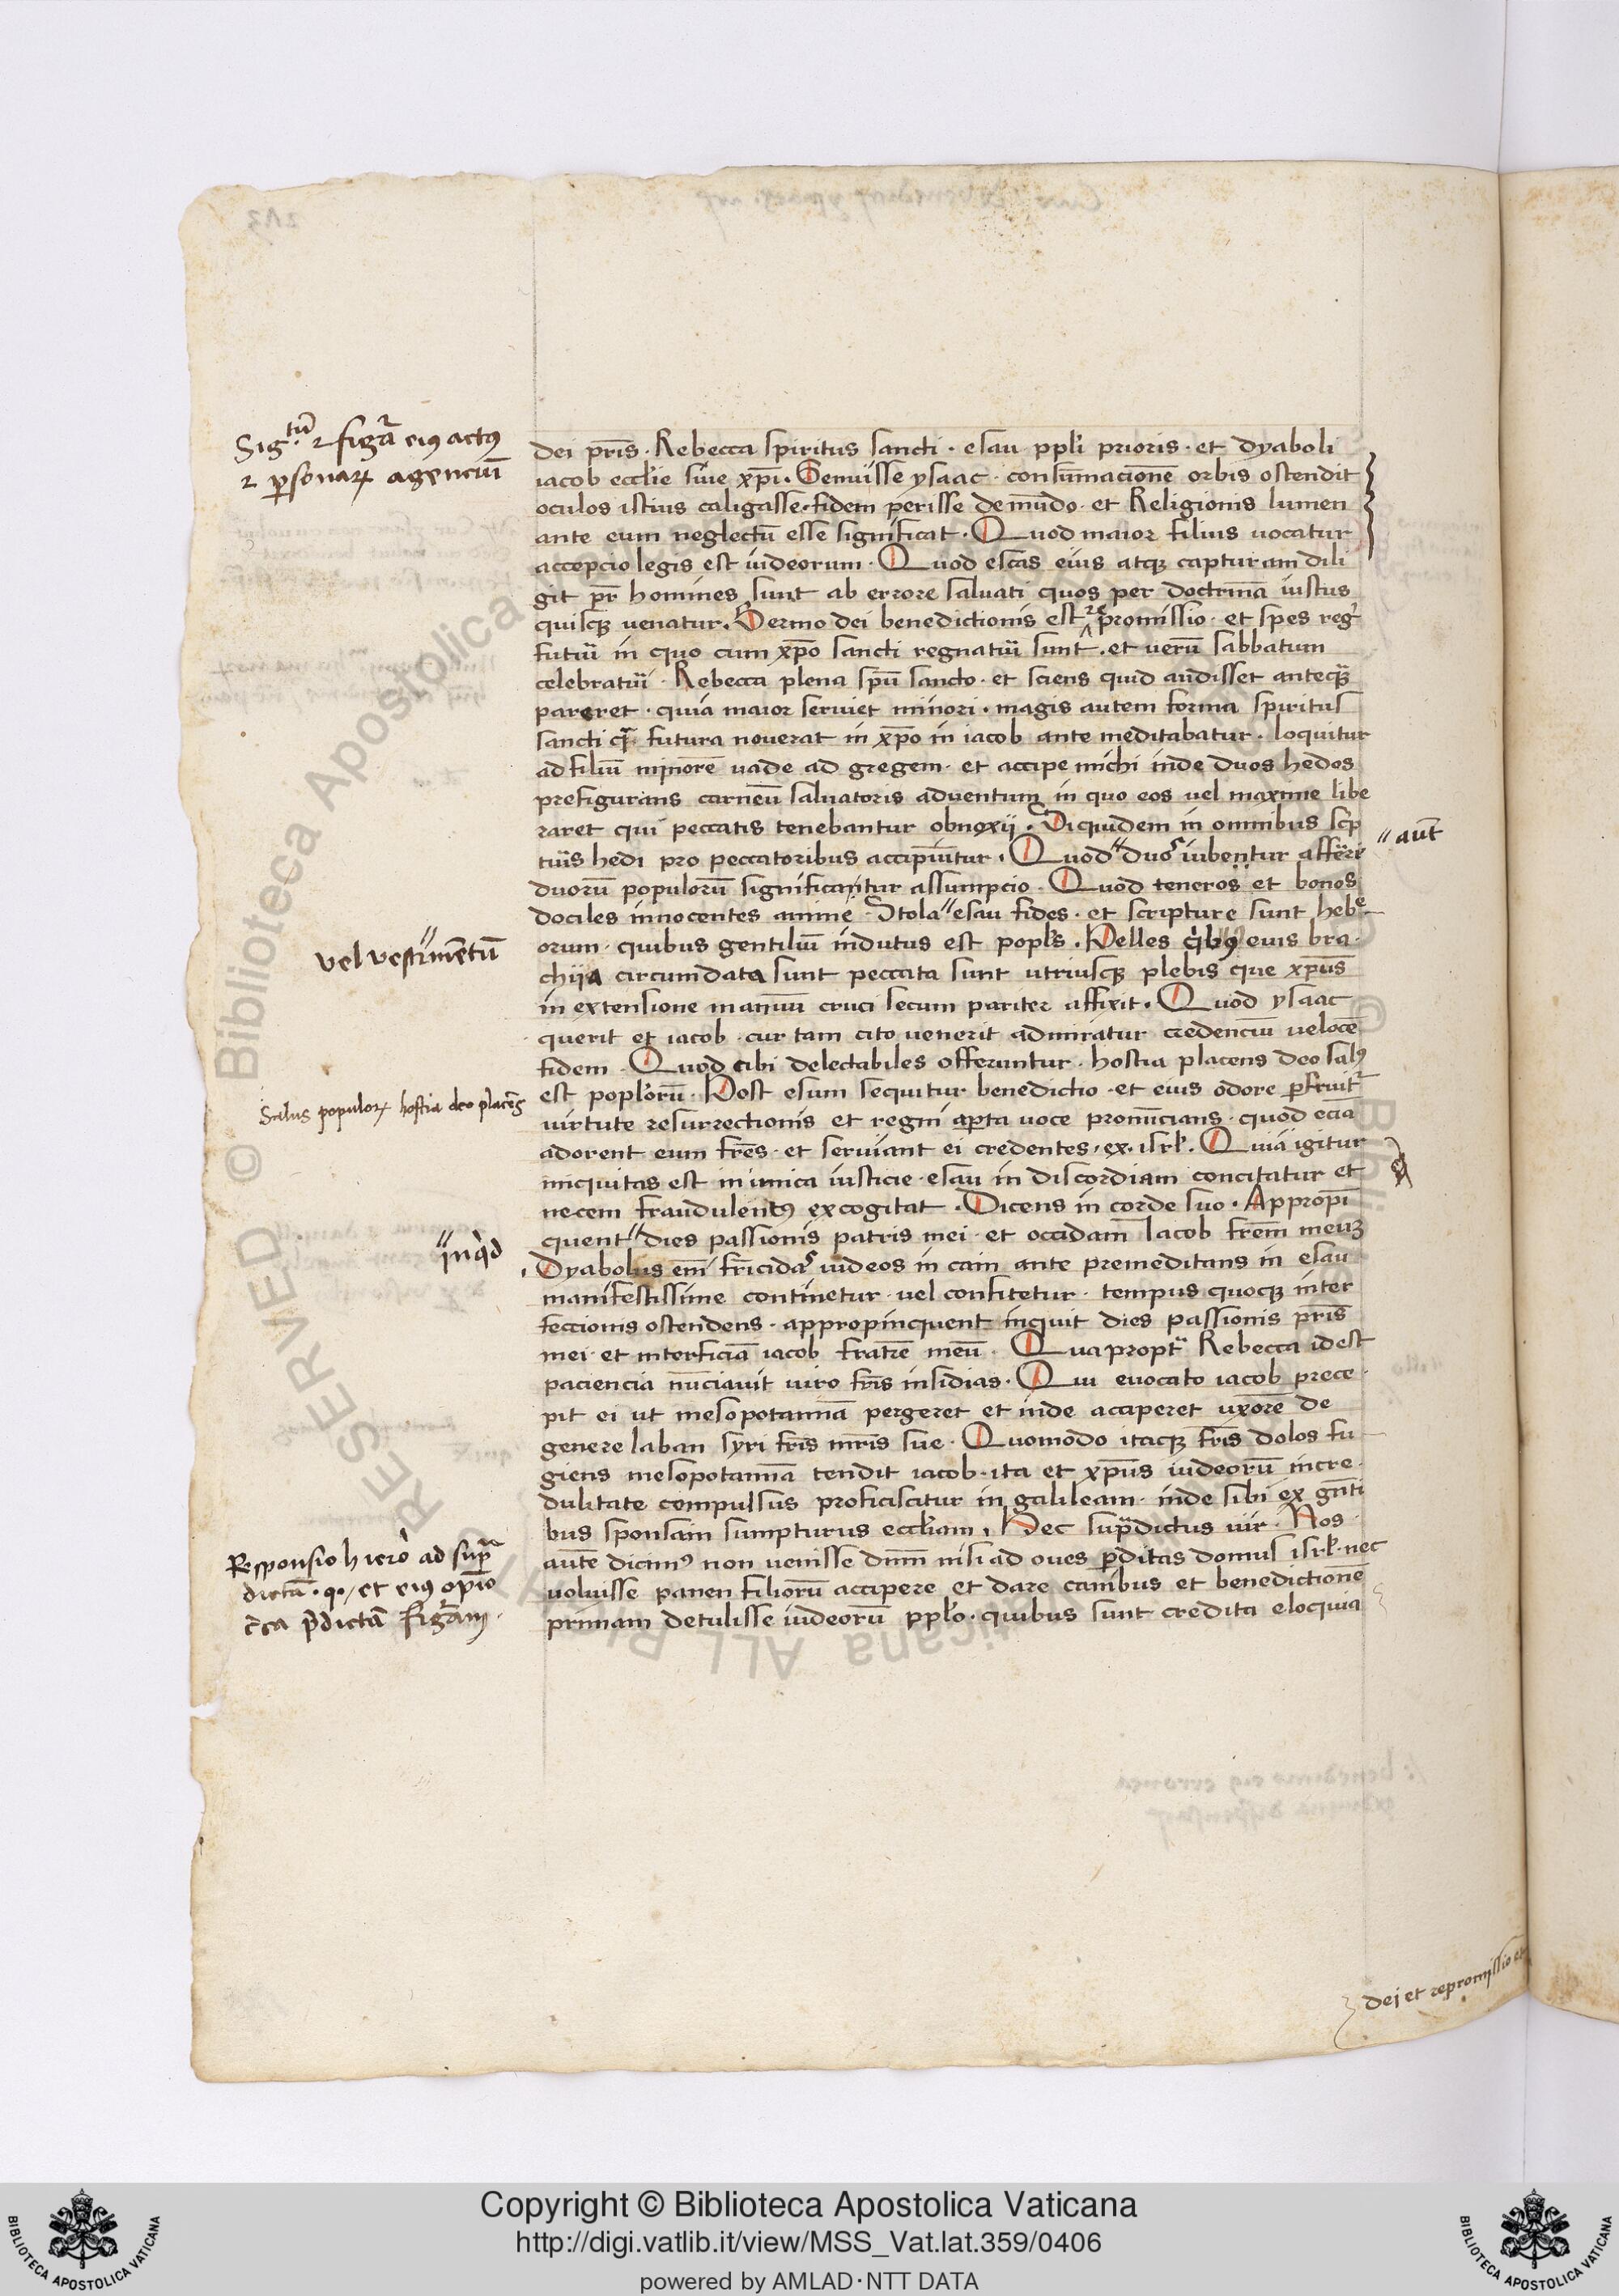 Sig.tū ⁊ figā eiꝰ actꝰ
⁊ ꝑsonaꝝ agenciū
dei pr̄is · Rebecca spiritus sancti · esau ppłi prioris · et dyaboli
iacob eccłie siue xp̄i · Senuisse ysaac · consūmacionē orbis ostendit
oculos istius caligasse · fidem perisse de mūdo · et Religionis lumen
ante eum neglectū esse significat · Quod maior filius uocatur
accepcio legis est iudeorum · Quod escas eius atqꝫ capturam dili
git pr̄ homines sunt ab errore saluati quos per doctrinā iustus
quisqꝫ uenatur · Sermo dei benedictionis est re promissio · et spes reg̃
futuri in quo cum xp̄o sancti regnaturi sunt · et uerū sabbatum
celebraturi · Rebecca plena spū sancto · et sciens quid audisset anteqꝫ
pareret · quia maior seruiet minori · magis autem forma spiritus
sancti q̄ futura nouerat in xp̄o in iacob ante meditabatur · loquitur
ad filiū minorē uade ad gregem · et accipe michi inde duos hedos
prefigurans carneū saluatoris aduentum in quo eos uel maxime libe
raret qui peccatis tenebantur obnoxij · Siquidem in omnibus scp
turis hedi pro peccatoribus accipiūtur · Quod " duos iubentur afferre
" aūt
duorū populorū significantur assumpcio · Quod teneros et bonos
dociles innocentes anime · Stola " esau fides · et scripture sunt hebe
orum · quibus gentiliū indutus est popl̄s · Pelles qͥbꝰ eius bra
" vel vestimētū
chija circumdata sunt peccata sunt utriusqꝫ plebis que xp̄us
in extensione manuū cruci secum pariter affixit · Quod ysaac
querit et iacob · cur tam cito uenerit admiratur credenciū uelocē
fidem · Quod cibi delectabiles offeruntur · hostia placens deo salꝰ
est popl̄orū · Post esum sequitur benedictio · et eius odore ꝑfruit᷑
Salus populoꝝ hostia deo placēs
uirtute resurrectionis et regni aꝑta uoce pronūcians · quod eciā
adorent eum fr̄es · et seruiant ei credentes · ex · isrł · Quia igitur
iniquitas est inimica iusticie · esau in discordiam concitatur et
necem fraudulentꝰ excogitat · Dicens in corde suo · Appropī
quent " dies passionis patris mei · et occidam Iacob fr̄em meuꝫ
" inqͥd
Dyabolus em̄ fr̄icidas iudeos in cain ante premeditans in esau
manifestissime continetur · uel confitetur · tempus quoqꝫ inter
feccionis ostendens · appropinquent inquit dies passionis pr̄is
mei · et interficiā iacob fratrē meū · Quapropt̄ Rebecca idest
paciencia nūciauit uiro fr̄is insidias · Qui euocato iacob prece
pit ei ut mesopotamiā pergeret et inde acciperet uxorē de
genere laban syri fr̄is mr̄is sue · Quomodo itaqꝫ fr̄is dolos fu
giens mesopotamiā tendit iacob · ita et xp̄us iudeorū incre
dulitate compulsus proficiscitur in galileam · inde sibi ex gn̄ti
bus sponsam sumpturus eccłiam · Hec sup̄dictus uir · Nos
autē dicimꝰ non uenisse dn̄m nisi ad oues ꝑditas domus isrł · nec
uoluisse panen filiorū accipere et dare canibus et benedictionē
primam detulisse iudeorū ppło · quibus sunt credita eloquia
Responsio hierō ad sup̄
dictā · q̄ · et eiꝰ opīo
c̄ca p̄dictā figᵃm ·
dei et repromissio et
Copyright © Biblioteca Apostolica Vaticana
http://digi.vatlib.it/view/MSS_Vat.lat.359/0406
powered by AMLAD·NTT DATA
BIBLIOTECA APOSTOLICA VATICANA
BIBLIOTECA APOSTOLICA VATICANA